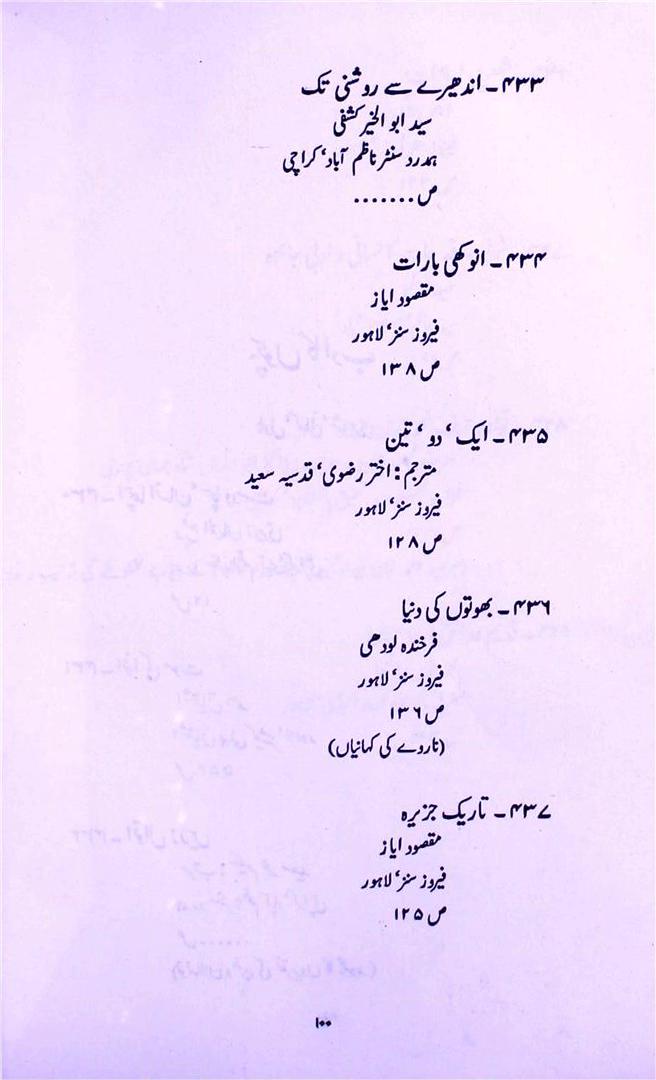 ۴۳۳ ۔ اندھیرے سے روشنی تک
سید ابو الخیر کشفی
ہمدرد سنٹر ناظم آباد‘ کراچی
ص.......
۴۳۴ ۔ انوکھی بارات
مقصود ایاز
فیروز سنز‘ لاہور
ص ۱۳۸
۴۳۵ ۔ ایک‘ دو‘ تین
مترجم : اختر رضوی‘ قدسیہ سعید
فیروز سنز‘ لاہور
ص ۱۲۸
۴۳۶ ۔ بھوتوں کی دنیا
فرخندہ لودھی
فیروز سنز‘ لاہور
ص ۱۳۶
(ناروے کی کہانیاں)
۴۳۷ ۔ تاریک جزیرہ
مقصود ایاز
فیروز سنز‘ لاہور
ص ۱۲۵
۱۰۰